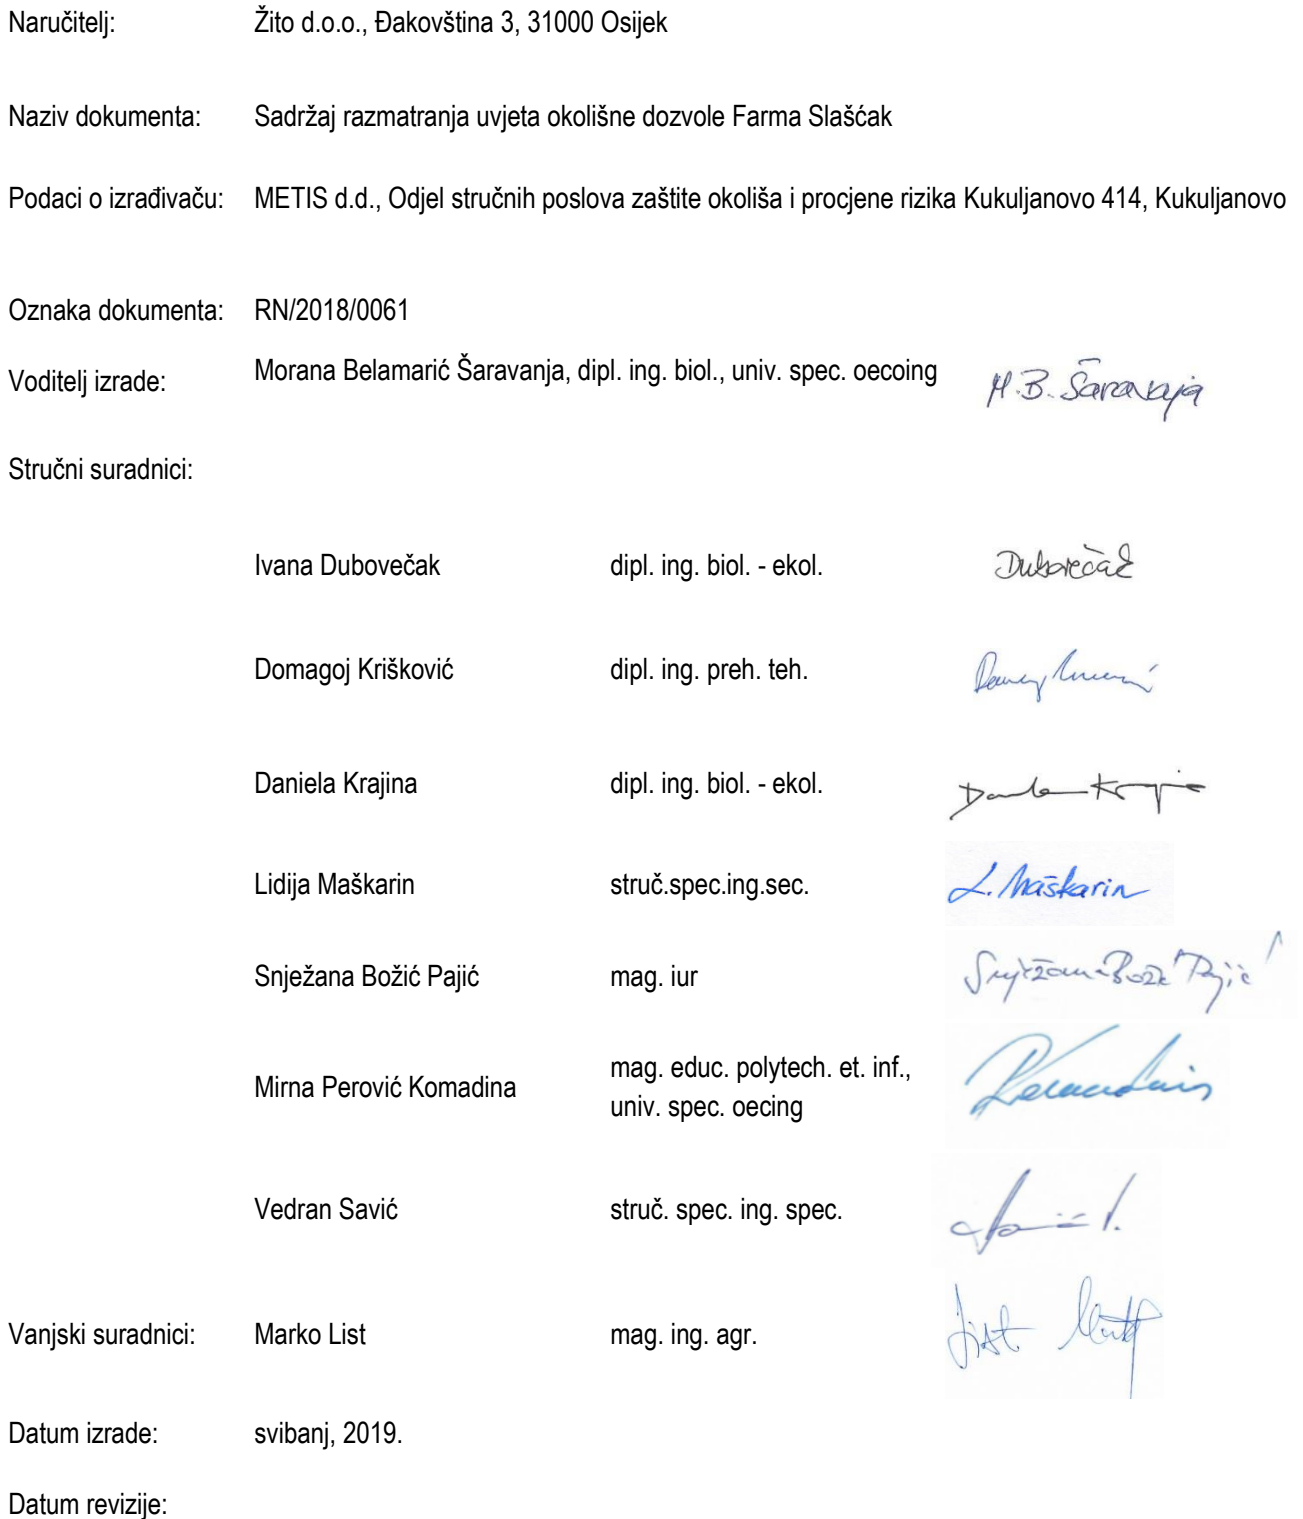 Naručitelj: Žito d.o.o., Đakovština 3, 31000 Osijek
Naziv dokumenta: Sadržaj razmatranja uvjeta okolišne dozvole Farma Slašćak
Podaci o izrađivaču: METIS d.d., Odjel stručnih poslova zaštite okoliša i procjene rizika Kukuljanovo 414, Kukuljanovo
Oznaka dokumenta: RN/2018/0061
Voditelj izrade: Morana Belamarić Šaravanja, dipl. ing. biol., univ. spec. oecoing M.B. Šaravanja
Stručni suradnici:
Ivana Dubovečak dipl. ing. biol. - ekol. Dubovečak
Domagoj Krišković dipl. ing. preh. teh.
Daniela Krajina dipl. ing. biol. - ekol.
Lidija Maškarin struč.spec.ing.sec. L. Maškarin
Snježana Božić Pajić mag. iur Snježana Božić Pajić
Mirna Perović Komadina mag. educ. polytech. et. inf.,
univ. spec. oecing
Vedran Savić struč. spec. ing. spec.
Vanjski suradnici: Marko List mag. ing. agr. List
Datum izrade: svibanj, 2019.
Datum revizije: